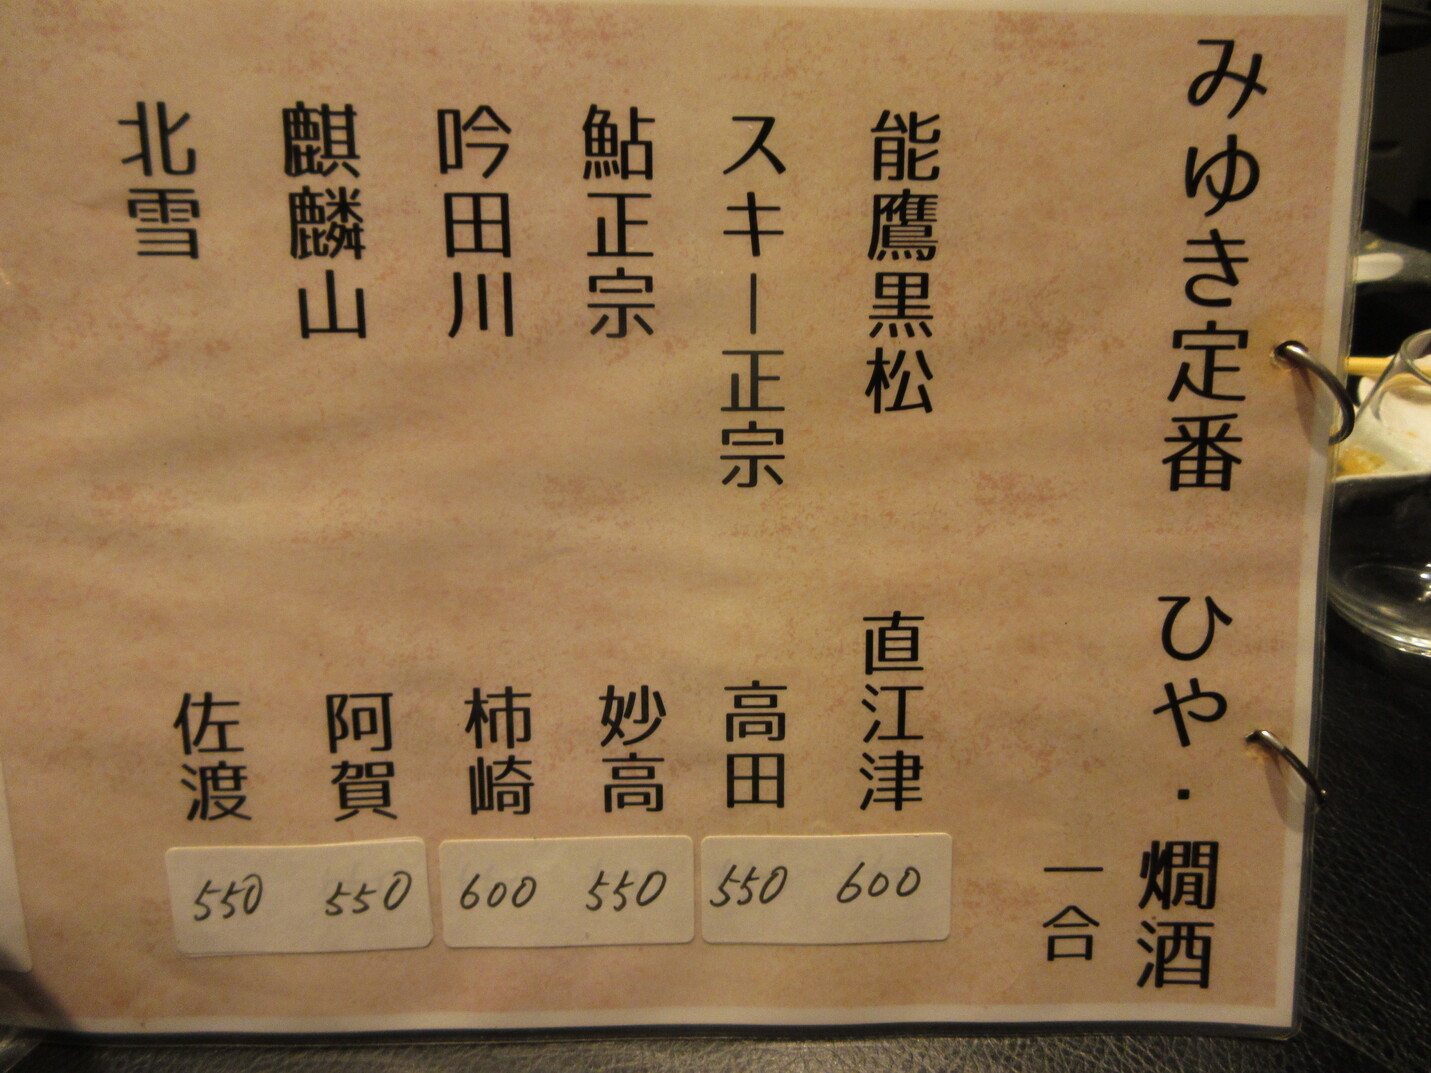 みゆき定番 ひや・燗酒
一合
能鷹黒松 直江津 600
スキー正宗 高田 550
鮎正宗 妙高 550
吟田川 柿崎 600
麒麟山 阿賀 550
北雪 佐渡 550